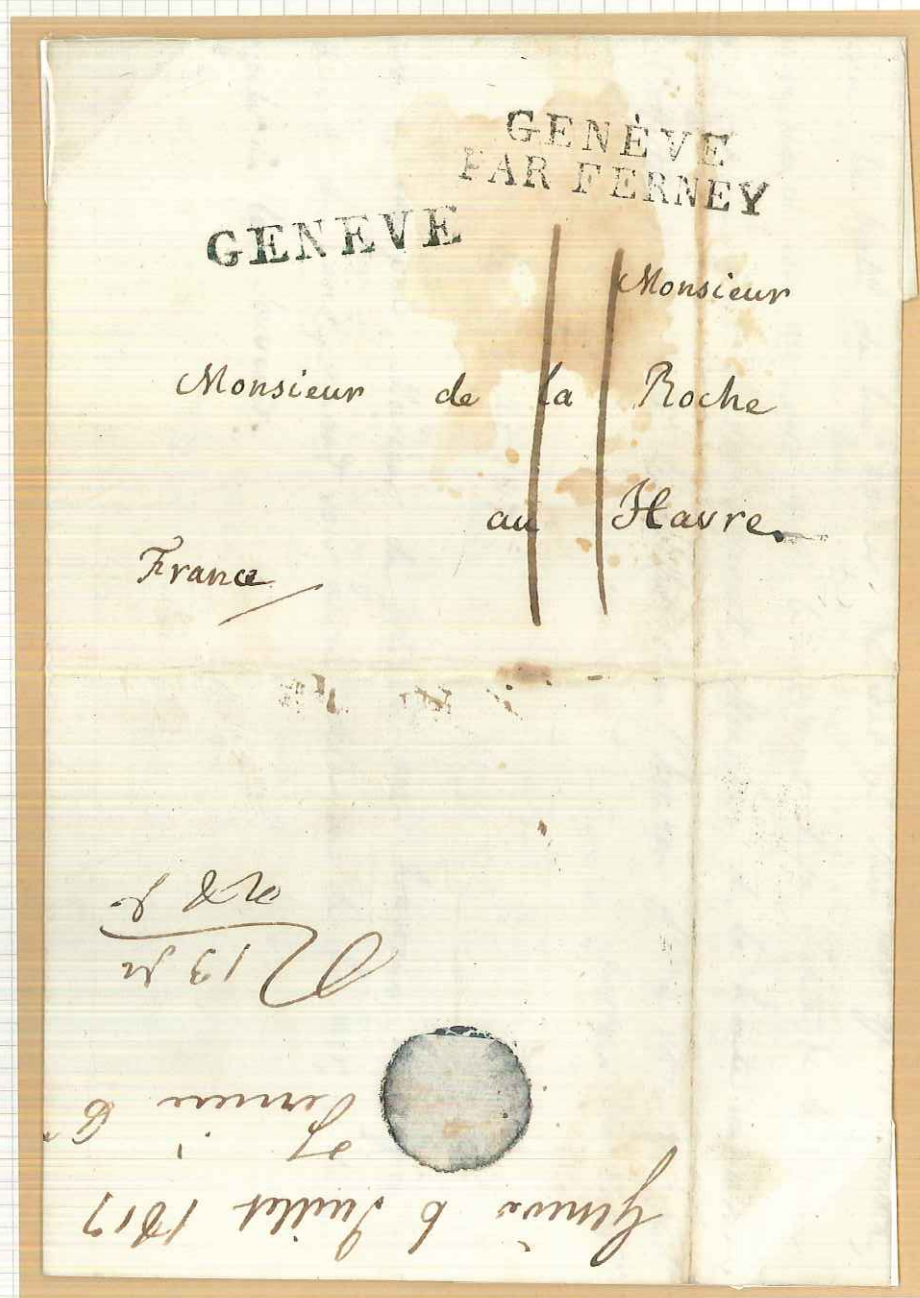 GENÈVE
PAR FERNEY
GENEVE
Monsieur
Monsieur de la Roche
au Havre.
France
Genève 6 Juillet 1817
R 13